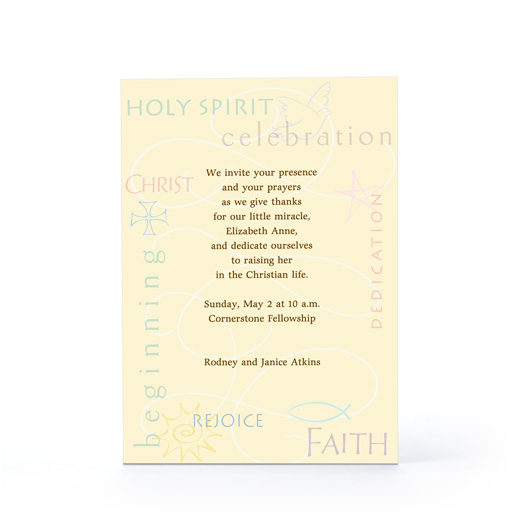 HOLY SPIRIT
celebration
We invite your presence
and your prayers
as we give thanks
for our little miracle,
Elizabeth Anne,
and dedicate ourselves
to raising her
in the Christian life.
Sunday, May 2 at 10 a.m.
Cornerstone Fellowship
Rodney and Janice Atkins
CHRIST
DEDICATION
beginning
REJOICE
FAITH